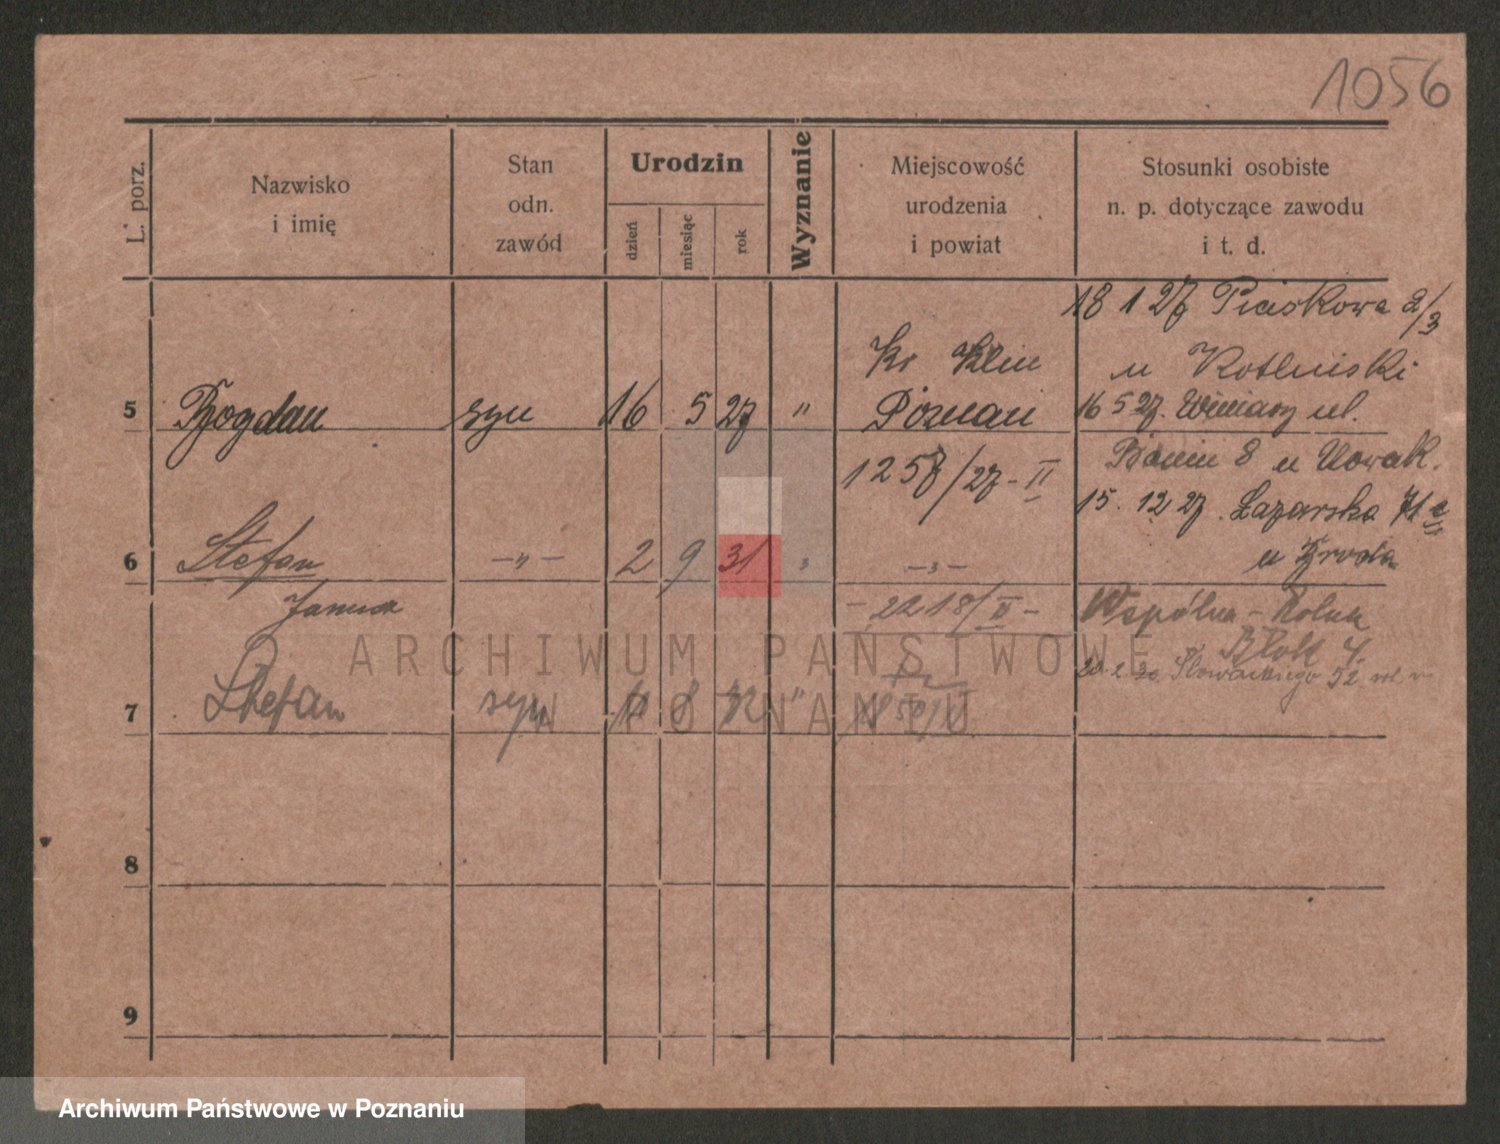 1056
L. porz.
Nazwisko
i imię
Stan
odn.
zawód
Urodzin
dzień
miesiąc
rok
Wyznanie
Miejscowość
urodzenia
i powiat
Stosunki osobiste
n. p. dotyczące zawodu
i t. d.
18 1 27 Piaskowa 2/3
u
5 Bogdan syn 16 5 27 "
Poznań
16 5 27. Winiary ul.
8 u Nowak.
1257/27-II
15. 12 27. Łazarska 71
6 Stefan -"- 2 9 31 " -"-
u
Janusz
- 2218/II -
Wspólna -
Blok 4.
Słowackiego 52
7 Stefan syn 8 32 "
8
9
ARCHIWUM PAŃSTWOWE
W POZNANIU
Archiwum Państwowe w Poznaniu